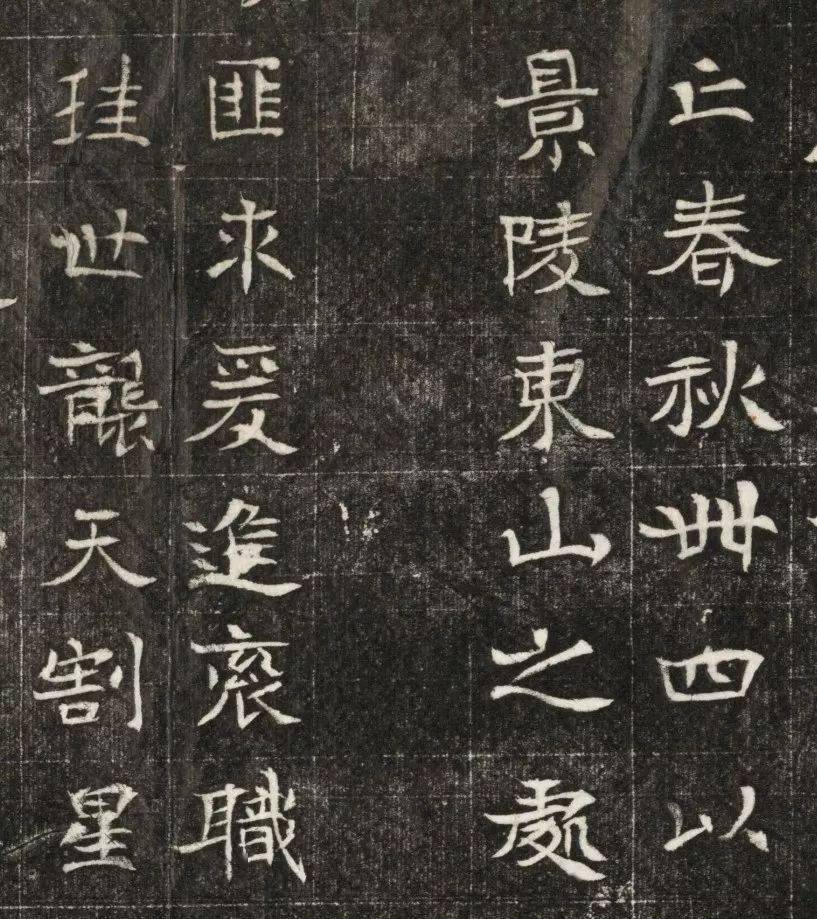 亡春秋卌四以
景陵東山之處
匪求爰進袞職
珪世襲天割星